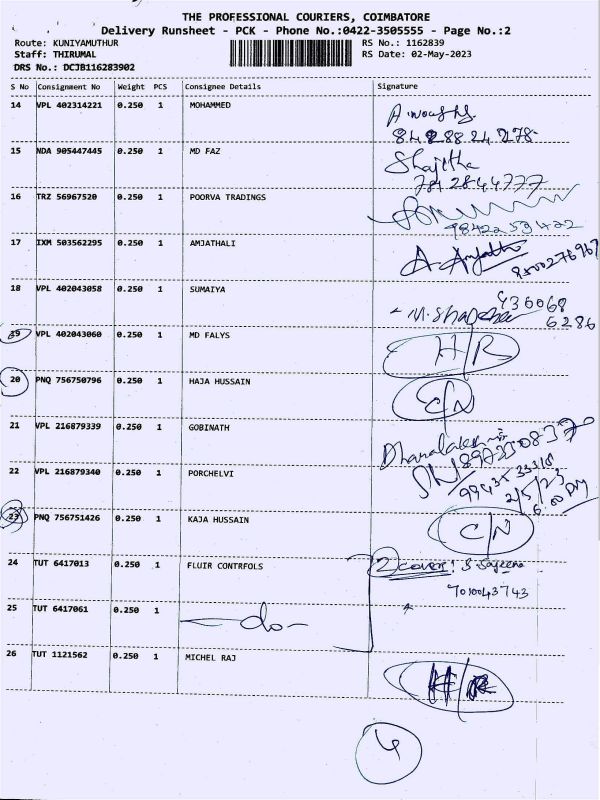 THE PROFESSIONAL COURIERS, COIMBATORE
Delivery Runsheet - PCK - Phone No.:0422-3505555 - Page No.:2
Route: KUNIYAMUTHUR RS No.: 1162839
Staff: THIRUMAL RS Date: 02-May-2023
DRS No.: DCJB116283902
S No Consignment No Weight PCS Consignee Details Signature
14 VPL 402314221 0.250 1 MOHAMMED
15 NDA 905447445 0.250 1 MD FAZ
Shajitha
7812844777
16 TRZ 56967520 0.250 1 POORVA TRADINGS
17 IXM 503562295 0.250 1 AMJATHALI
18 VPL 402043058 0.250 1 SUMAIYA
19 VPL 402043060 0.250 1 MD FALYS H/R
20 PNQ 756750796 0.250 1 HAJA HUSSAIN C/N
21 VPL 216879339 0.250 1 GOBINATH
22 VPL 216879340 0.250 1 PORCHELVI
2/5/23
6.00 PM
23 PNQ 756751426 0.250 1 KAJA HUSSAIN C/N
24 TUT 6417013 0.250 1 FLUIR CONTRFOLS 2 cover! S. Sajeena
7010043743
25 TUT 6417061 0.250 1 -do-
26 TUT 1121562 0.250 1 MICHEL RAJ
4